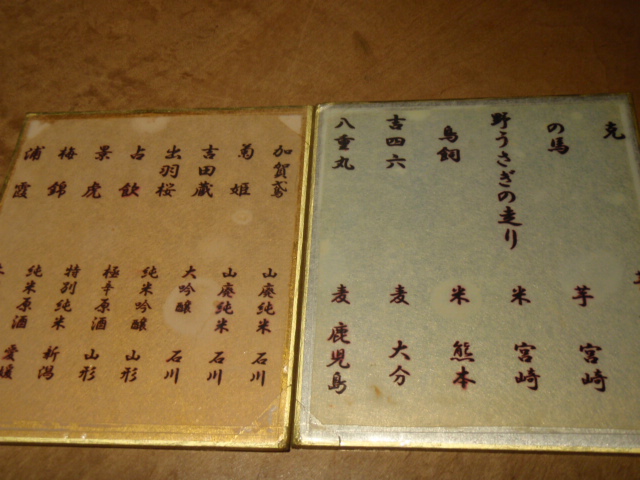 克
の馬 芋 宮崎
野うさぎの走り 米 宮崎
鳥飼 米 熊本
吉四六 麦 大分
八重丸 麦 鹿児島
加賀鳶 山廃純米 石川
菊姫 山廃純米 石川
吉田蔵 大吟醸 石川
出羽桜 純米吟醸 山形
占飲 極辛原酒 山形
景虎 特別純米 新潟
梅錦 純米原酒 愛媛
浦霞